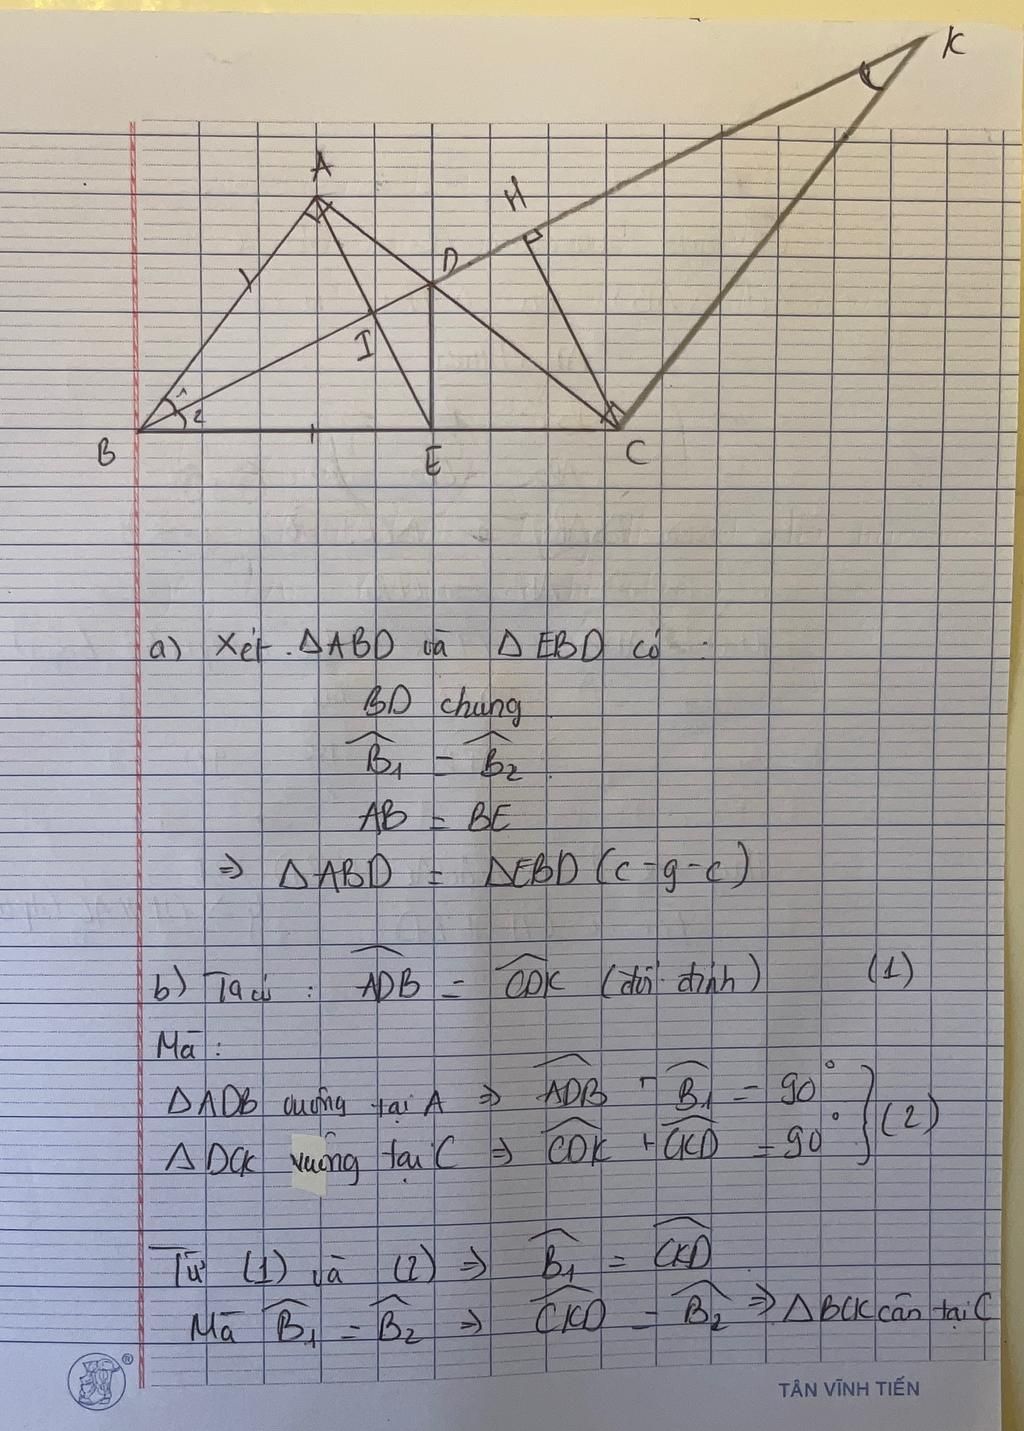 K
A
H
D
I
1
2
B
E
C
a) Xét. ΔABD và ΔEBD có :
BD chung
B̂₁ = B̂₂
AB = BE
⇒ ΔABD = ΔEBD (c-g-c)
b) Ta có : ADB̂ = CDK̂ (đối đỉnh) (1)
Mà :
ΔADB vuông tại A ⇒ ADB̂ + B̂₁ = 90°
ΔDCK vuông tại C ⇒ CDK̂ + CKD̂ = 90° } (2)
Từ (1) và (2) ⇒ B̂₁ = CKD̂
Mà B̂₁ = B̂₂ ⇒ CKD̂ = B̂₂ ⇒ ΔBCK cân tại C
®
TÂN VĨNH TIẾN